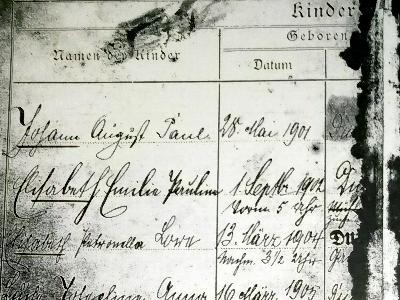 Kinder
Geboren
Namen der Kinder
Datum
Johann August Paul 28. Mai 1901
Elisabeth Emilie Pauline 1. Septbr 1902
Vorm 5 Uhr
Elisabeth Petronella 13. März 1904
Nachm. 3 1/2 Uhr
Anna 16 März 1905